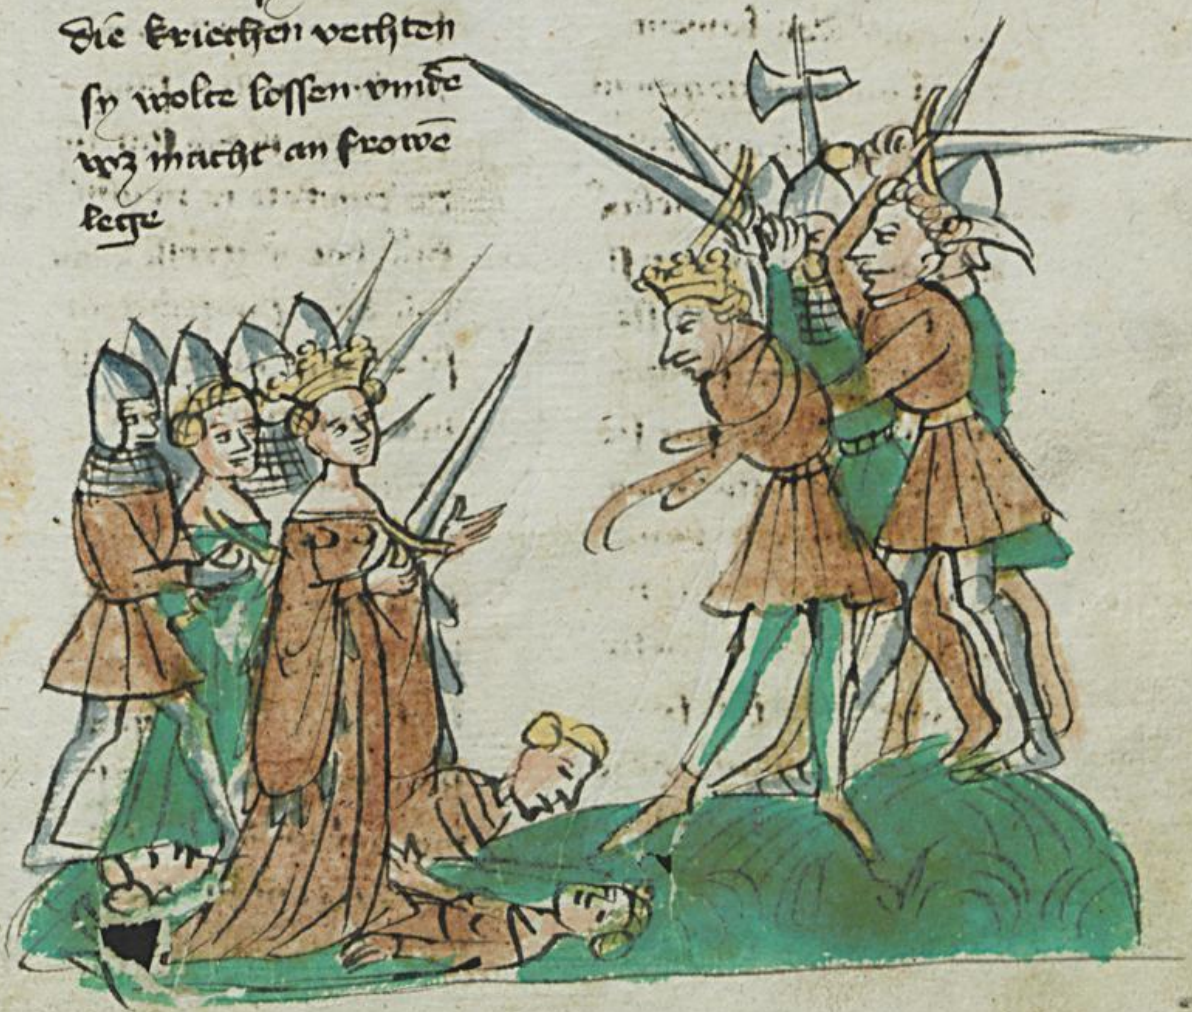 die kriechen vechten
sy wolte lossen vnidē
wz macht an frowē
lege